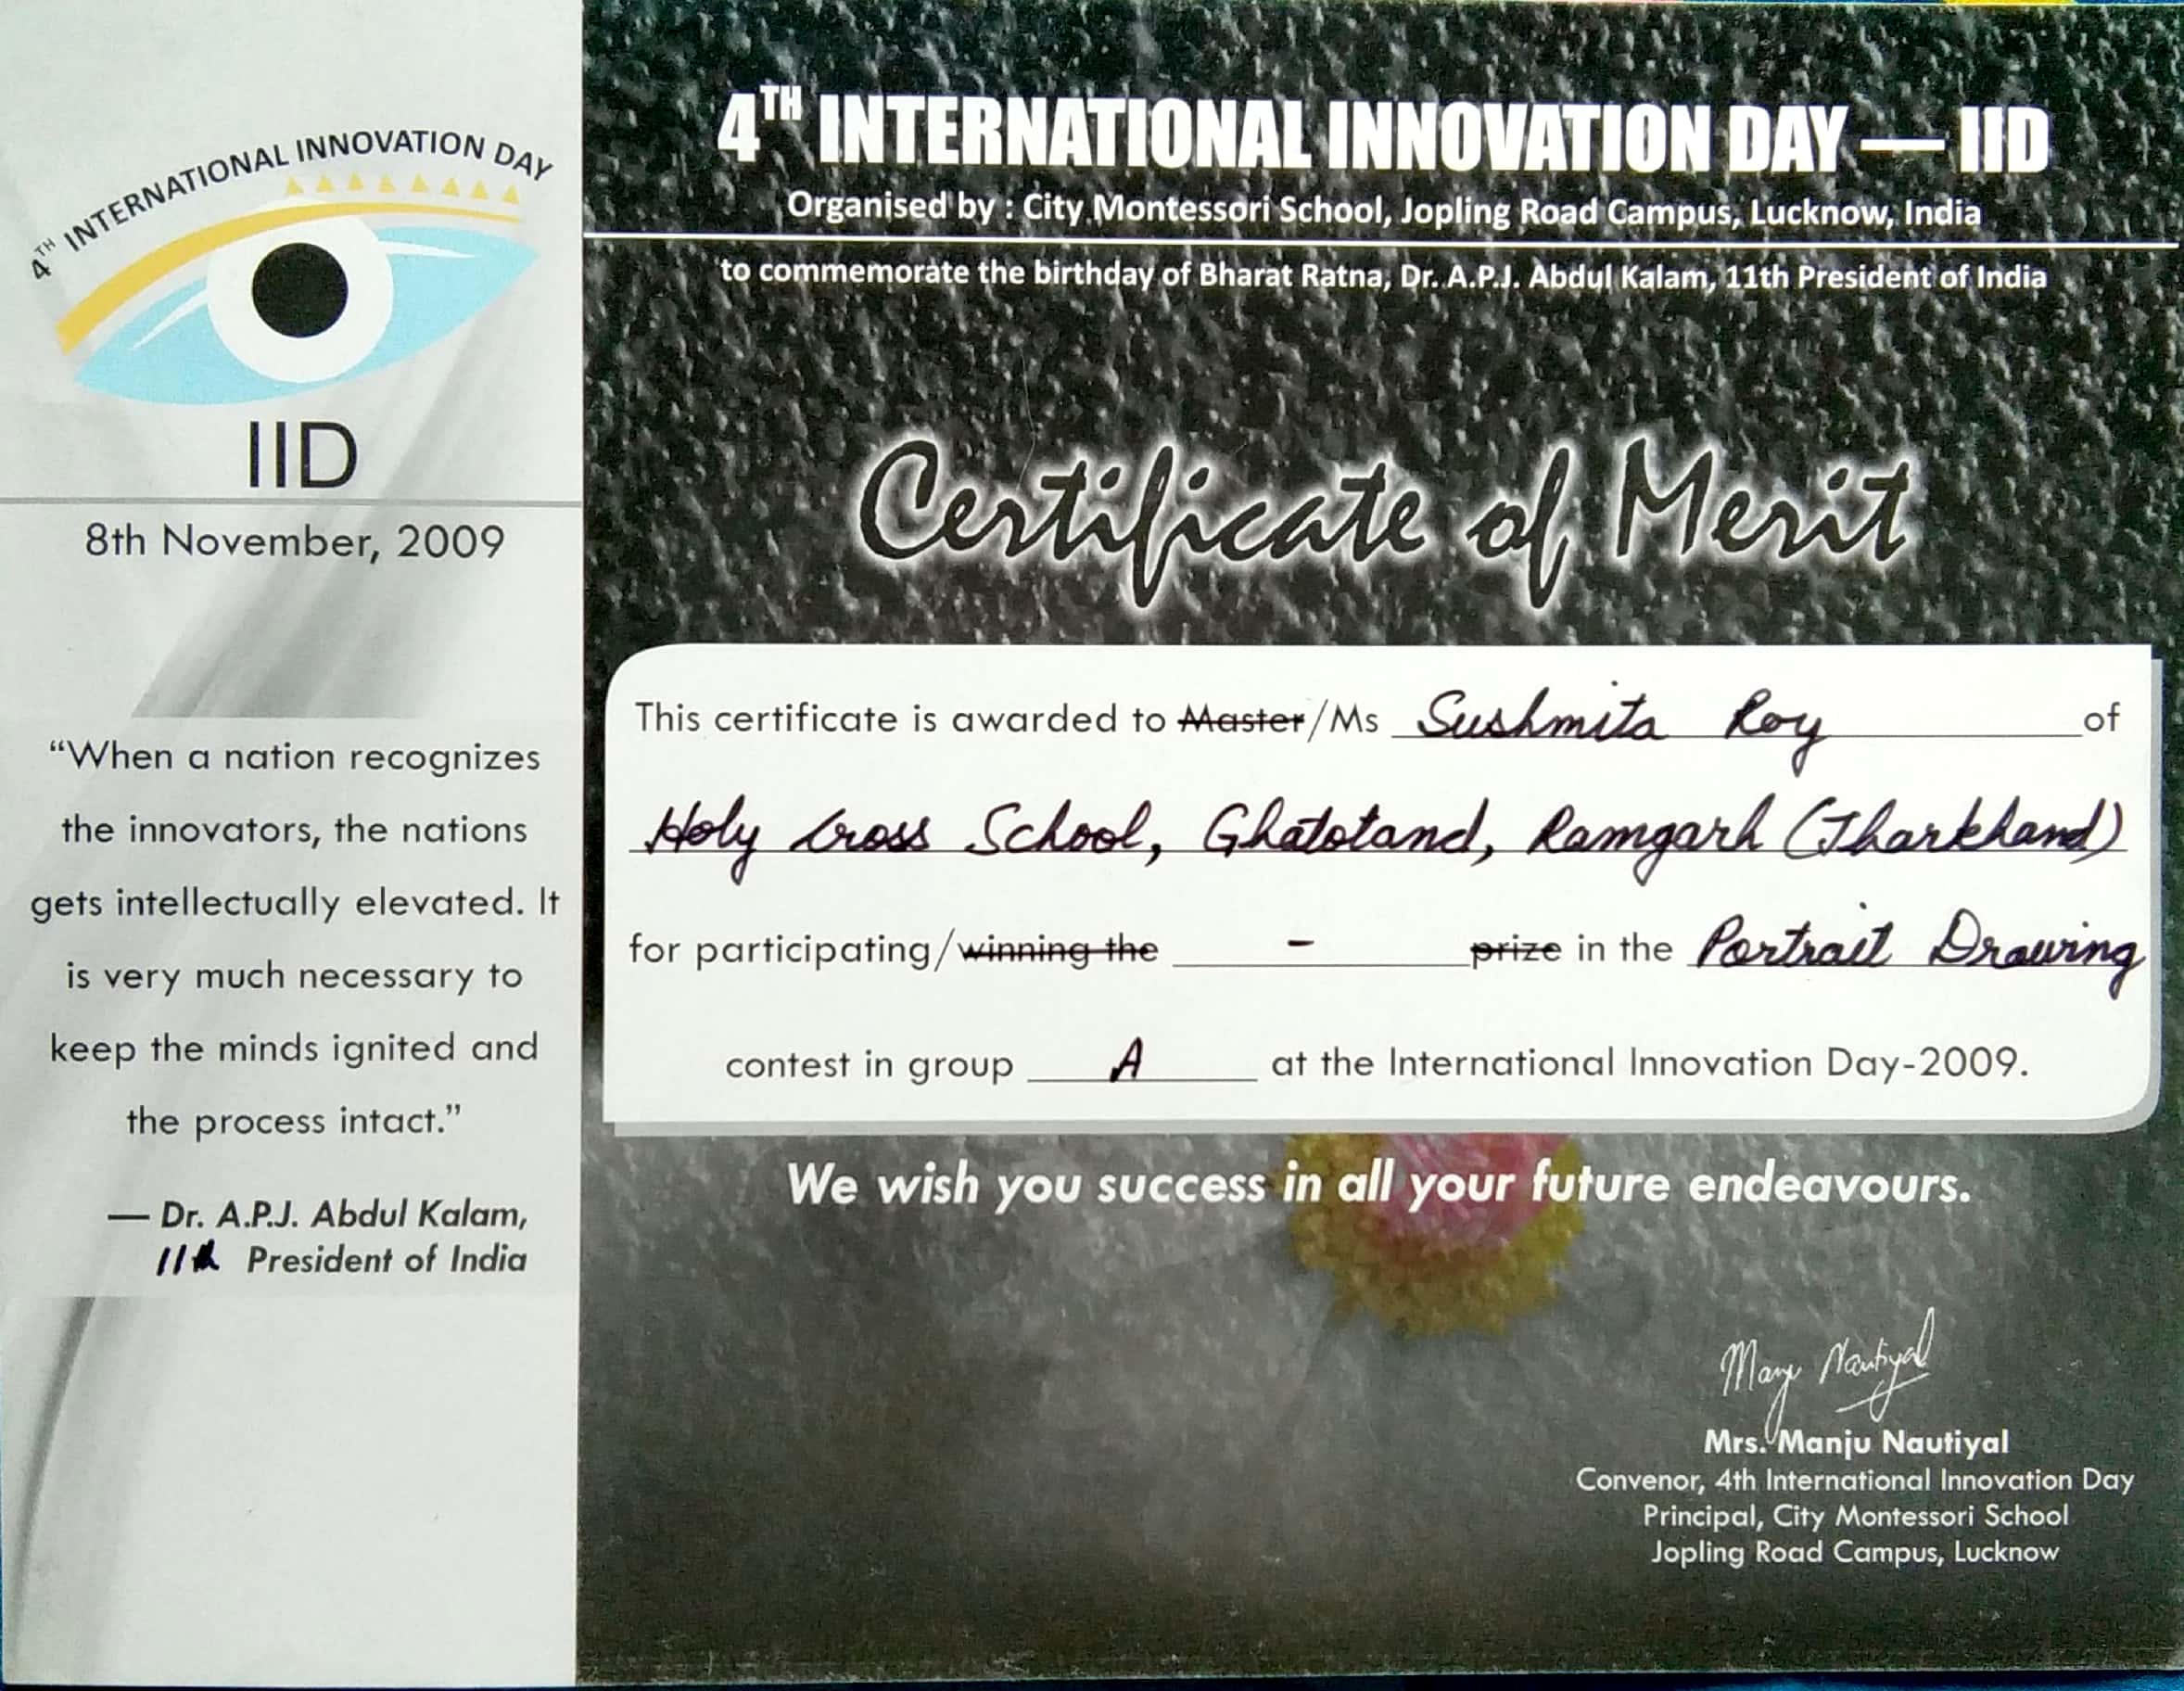 4TH INTERNATIONAL INNOVATION DAY
IID
8th November, 2009
“When a nation recognizes
the innovators, the nations
gets intellectually elevated. It
is very much necessary to
keep the minds ignited and
the process intact.”
— Dr. A.P.J. Abdul Kalam,
11th President of India
4TH INTERNATIONAL INNOVATION DAY — IID
Organised by : City Montessori School, Jopling Road Campus, Lucknow, India
to commemorate the birthday of Bharat Ratna, Dr. A.P.J. Abdul Kalam, 11th President of India
Certificate of Merit
This certificate is awarded to Master/Ms Sushmita Roy of
Holy Cross School, Ghatotand, Ramgarh (Jharkhand)
for participating/winning the - prize in the Portrait Drawing
contest in group A at the International Innovation Day-2009.
We wish you success in all your future endeavours.
Manju Nautiyal
Mrs. Manju Nautiyal
Convenor, 4th International Innovation Day
Principal, City Montessori School
Jopling Road Campus, Lucknow